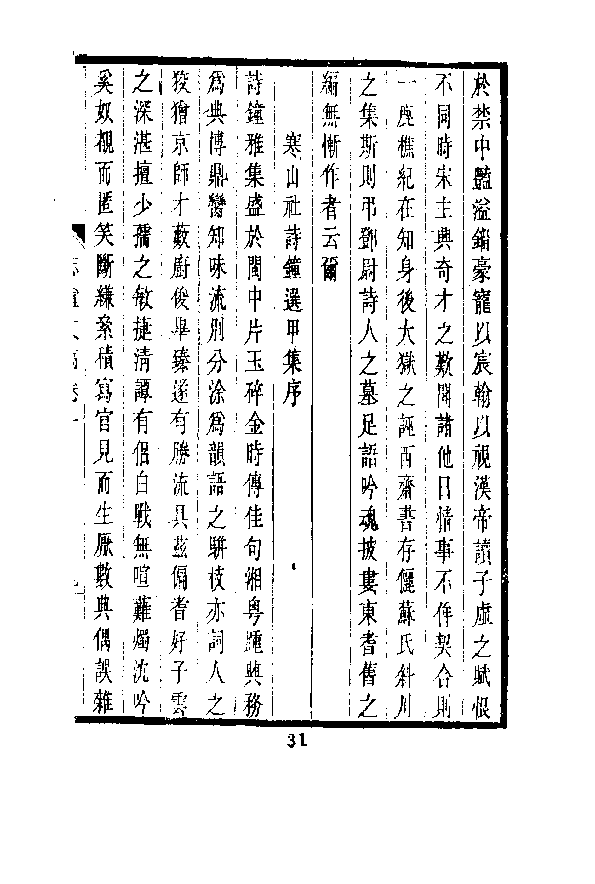 於禁中豔溢錙豪寵以宸翰以視漢帝讀子虛之賦恨
不同時宋主典奇才之歎閱諸他日情事不侔契合則
一座樵紀在知身後大獄之誣西齋書存儷蘇氏斜川
之集斯則弔鄧尉詩人之墓足語吟魂披婁東耆舊之
編無慚作者云爾
寒山社詩鐘選甲集序
詩鐘雅集盛於閩中片玉碎金時傳佳句湘粵踵興務
為典博鼎臠知味流別分涂為韻語之駢枝亦詞人之
狡獪京師才藪廚俊畢臻遂有勝流具茲偏耆好子雲
之深湛擅少孺之敏捷清譚有侶白戰無喧難燭沈吟
奚奴覘而匿笑斷縑絫積寫官見而生厭數典偶誤雜
31